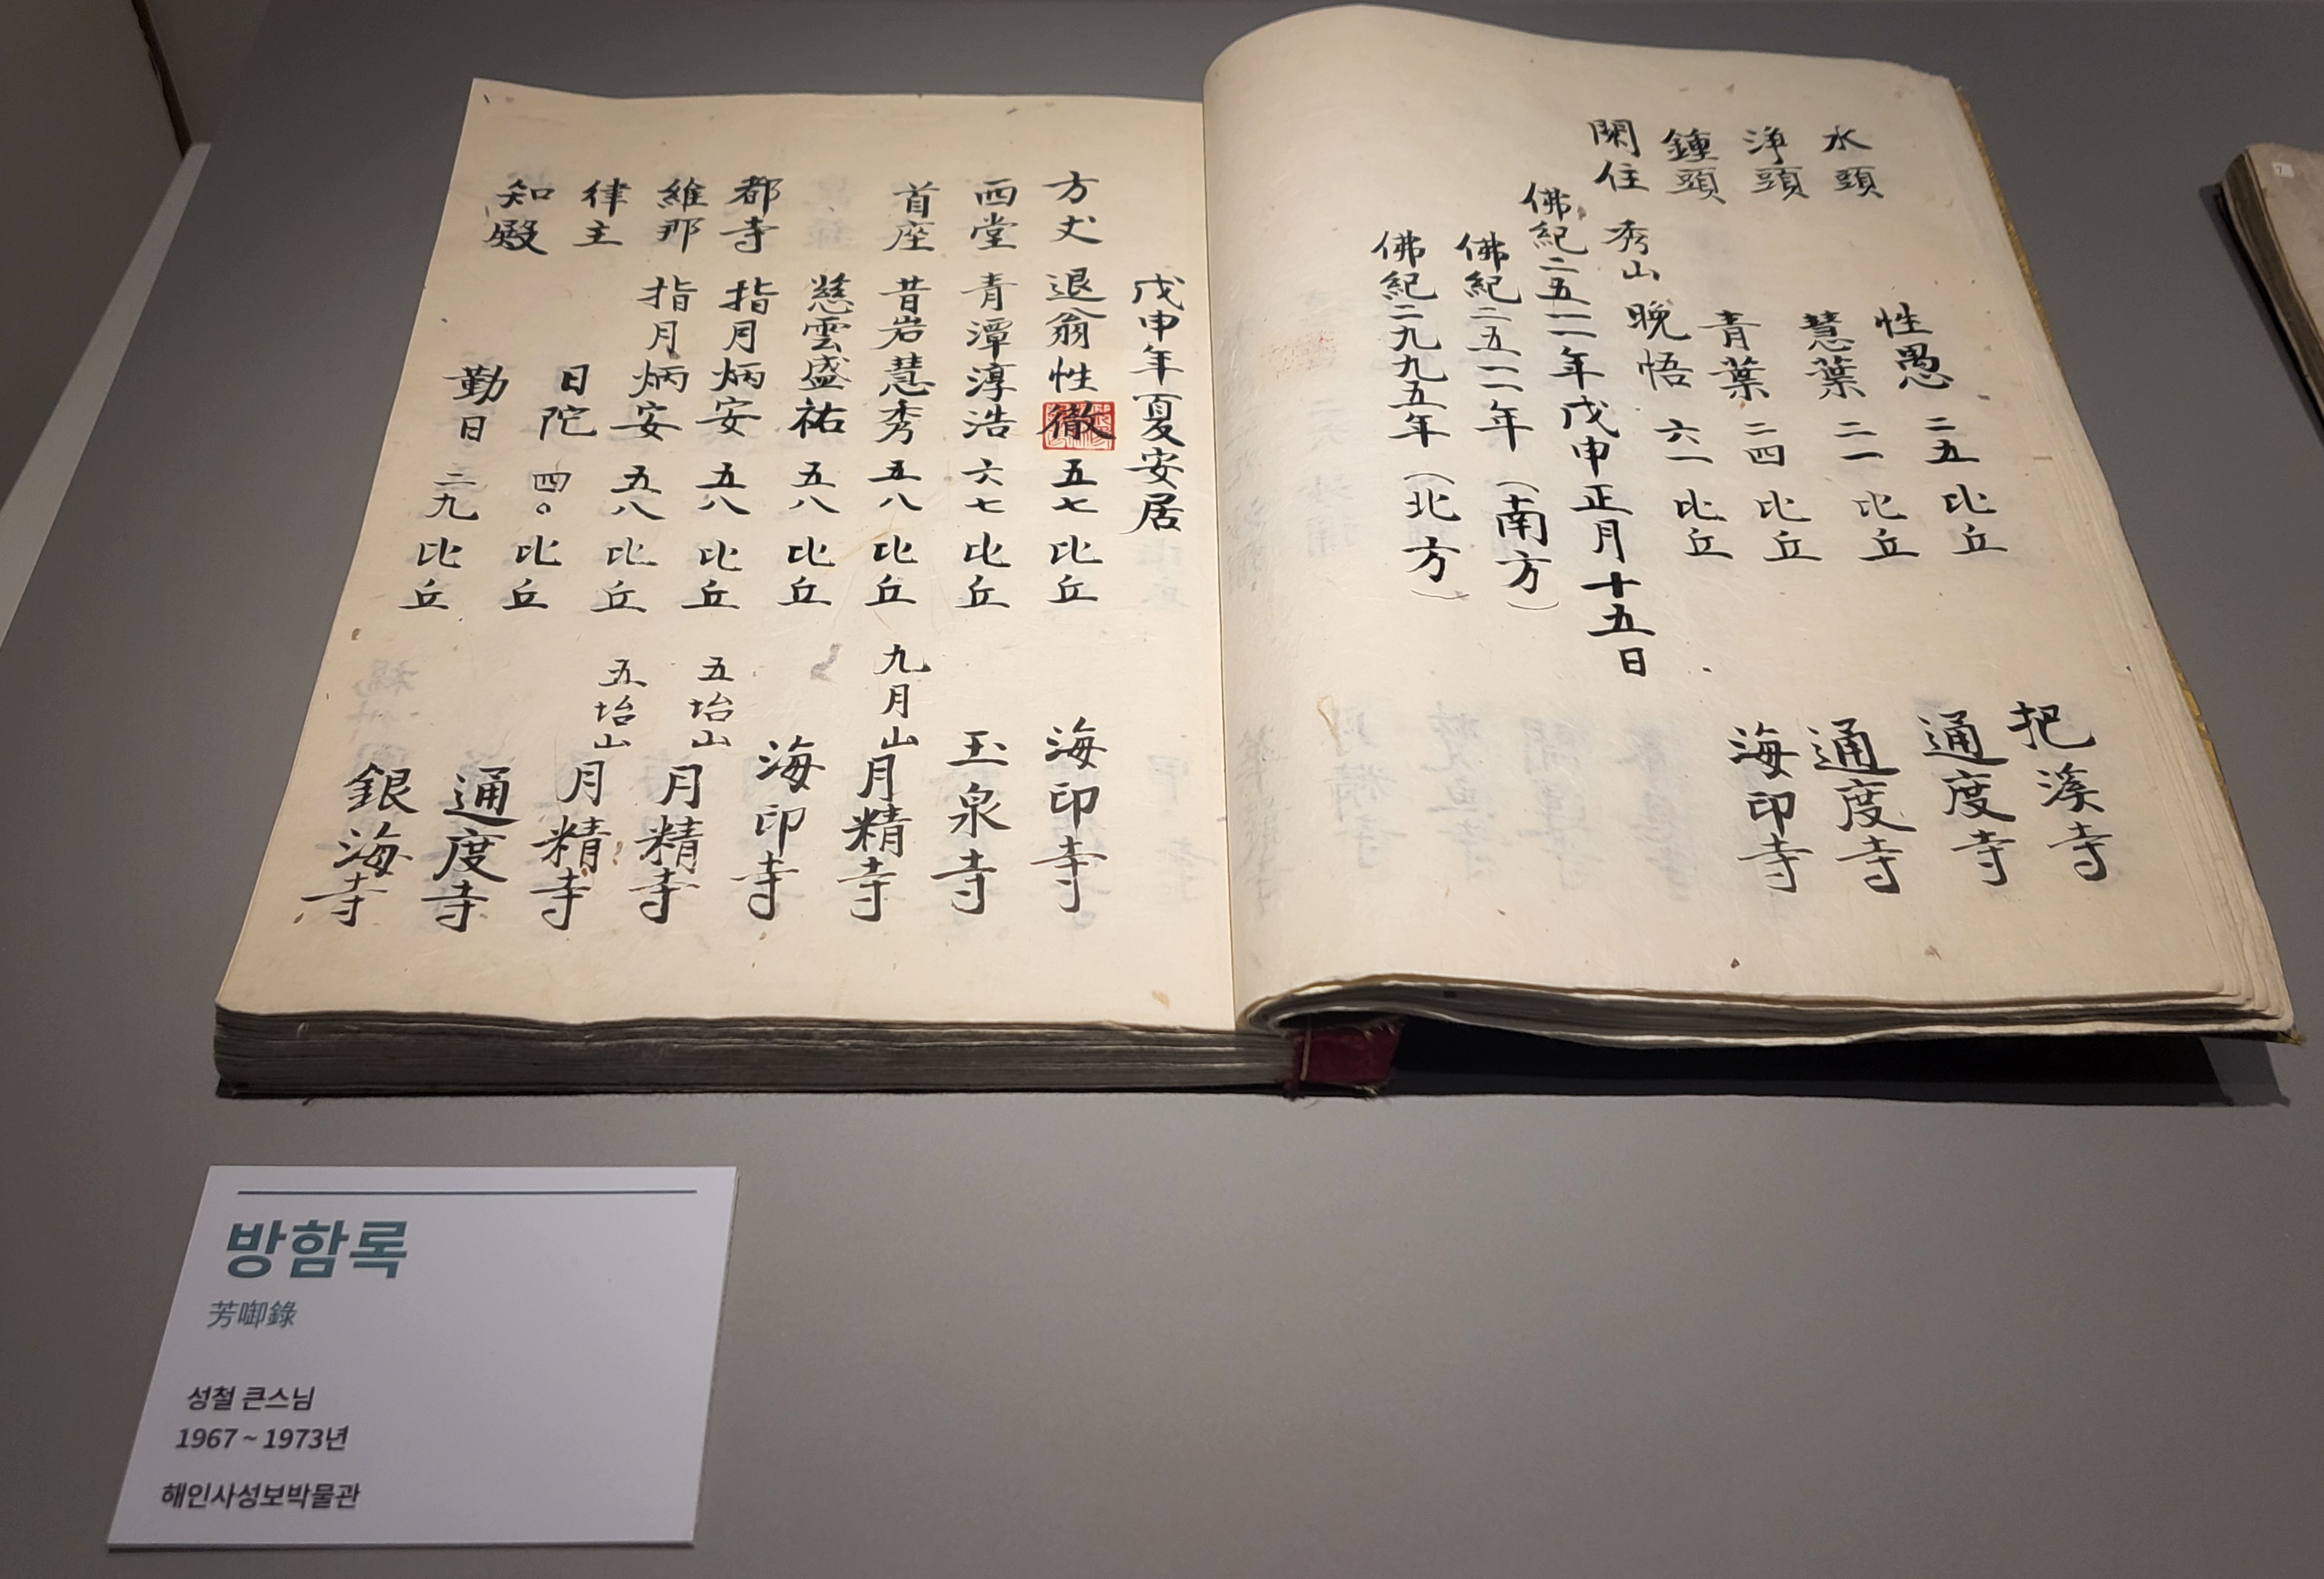 水頭 性愚 二五 比丘 把溪寺
淨頭 慧葉 二一 比丘 通度寺
鍾頭 青葉 二四 比丘 通度寺
閑住 秀山 晩悟 六一 比丘 海印寺
佛紀二五一二年戊申正月十五日
佛紀二五一二年(南方)
佛紀二九九五年(北方)
戊申年夏安居
方丈 退翁性徹 五七 比丘 海印寺
西堂 青潭淳浩 六七 比丘 玉泉寺
首座 昔岩慧秀 五八 比丘 九月山月精寺
慈雲盛祐 五八 比丘 海印寺
都寺 指月炳安 五八 比丘 五坮山月精寺
維那 指月炳安 五八 比丘 五坮山月精寺
律主 日陀 四〇 比丘 通度寺
知殿 勤日 二九 比丘 銀海寺
방함록
芳啣錄
성철 큰스님
1967 ~ 1973년
해인사성보박물관